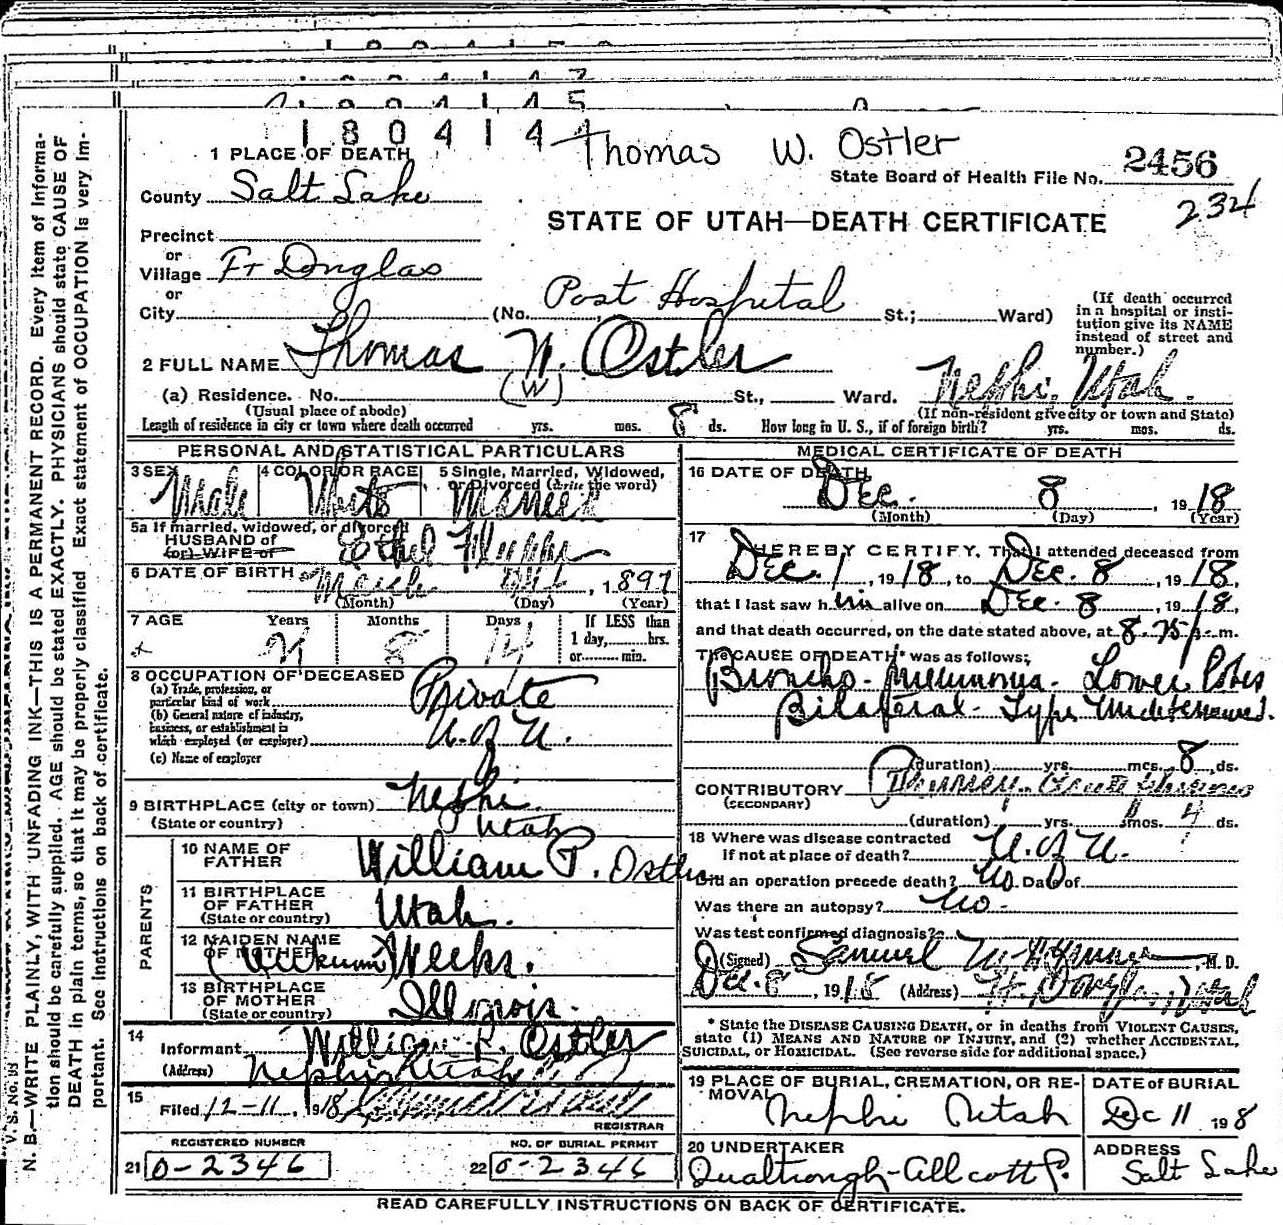 1804144
Thomas W. Ostler
1 PLACE OF DEATH
State Board of Health File No. 2456
County Salt Lake
234
STATE OF UTAH—DEATH CERTIFICATE
Precinct
or
Village Ft Douglas
or
City (No. Post Hospital St.; Ward)
(If death occurred in a hospital or institution give its NAME instead of street and number.)
2 FULL NAME Thomas W. Ostler
(W)
(a) Residence. No. St., Ward. Nephi, Utah.
(Usual place of abode) (If non-resident give city or town and State)
Length of residence in city or town where death occurred yrs. mos. 8 ds. How long in U. S., if of foreign birth? yrs. mos. ds.
PERSONAL AND STATISTICAL PARTICULARS
3 SEX Male
4 COLOR OR RACE White
5 Single, Married, Widowed, or Divorced (write the word) Married
5a If married, widowed, or divorced
HUSBAND of
(or) WIFE of Ethel
6 DATE OF BIRTH March , 1897
(Month) (Day) (Year)
7 AGE Years Months Days If LESS than
21 8 14 1 day, hrs.
or min.
8 OCCUPATION OF DECEASED
(a) Trade, profession, or particular kind of work Private
(b) General nature of industry, business, or establishment in which employed (or employer) U. of U.
(c) Name of employer
9 BIRTHPLACE (city or town) Nephi
(State or country) Utah
PARENTS
10 NAME OF FATHER William P. Ostler
11 BIRTHPLACE OF FATHER (State or country) Utah.
12 MAIDEN NAME OF MOTHER (Unknown) Weeks.
13 BIRTHPLACE OF MOTHER (State or country) Illinois.
14
Informant William P. Ostler
(Address) Nephi Utah
15
Filed 12-11, 1918
REGISTRAR
REGISTERED NUMBER NO. OF BURIAL PERMIT
21 0-2346 22 0-2346
MEDICAL CERTIFICATE OF DEATH
16 DATE OF DEATH
Dec. 8, 1918
(Month) (Day) (Year)
17
I HEREBY CERTIFY, That I attended deceased from
Dec. 1, 1918, to Dec. 8, 1918,
that I last saw h im alive on Dec. 8, 1918,
and that death occurred, on the date stated above, at 8.25 p. m.
The CAUSE OF DEATH* was as follows:
Broncho-Pneumonia. Lower Lobes
Bilateral. Type Undetermined.
(duration) yrs. mos. 8 ds.
CONTRIBUTORY Pleurisy
(SECONDARY)
(duration) yrs. mos. 4 ds.
18 Where was disease contracted
if not at place of death? U. of U.
Did an operation precede death? No. Date of
Was there an autopsy? No.
Was test confirmed diagnosis?
(Signed) Samuel , M. D.
Dec. 8, 1918 (Address) Ft. Douglas, Utah
* State the DISEASE CAUSING DEATH, or in deaths from VIOLENT CAUSES,
state (1) MEANS AND NATURE OF INJURY, and (2) whether ACCIDENTAL,
SUICIDAL, or HOMICIDAL. (See reverse side for additional space.)
19 PLACE OF BURIAL, CREMATION, OR REMOVAL Nephi Utah
DATE of BURIAL Dec 11 198
20 UNDERTAKER Qualtrough-Allcott
ADDRESS Salt Lake
READ CAREFULLY INSTRUCTIONS ON BACK OF CERTIFICATE.
V. S. No. 99
N. B.—WRITE PLAINLY, WITH UNFADING INK—THIS IS A PERMANENT RECORD. Every item of informa-
tion should be carefully supplied. AGE should be stated EXACTLY. PHYSICIANS should state CAUSE OF
DEATH in plain terms, so that it may be properly classified. Exact statement of OCCUPATION is very im-
portant. See instructions on back of certificate.